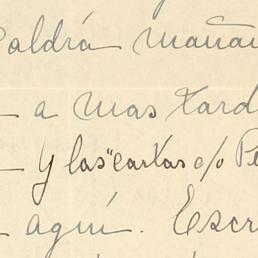 Saldrá mañan
- a mas tard
- y las "cartas c/o Pe
- aquí. Escr